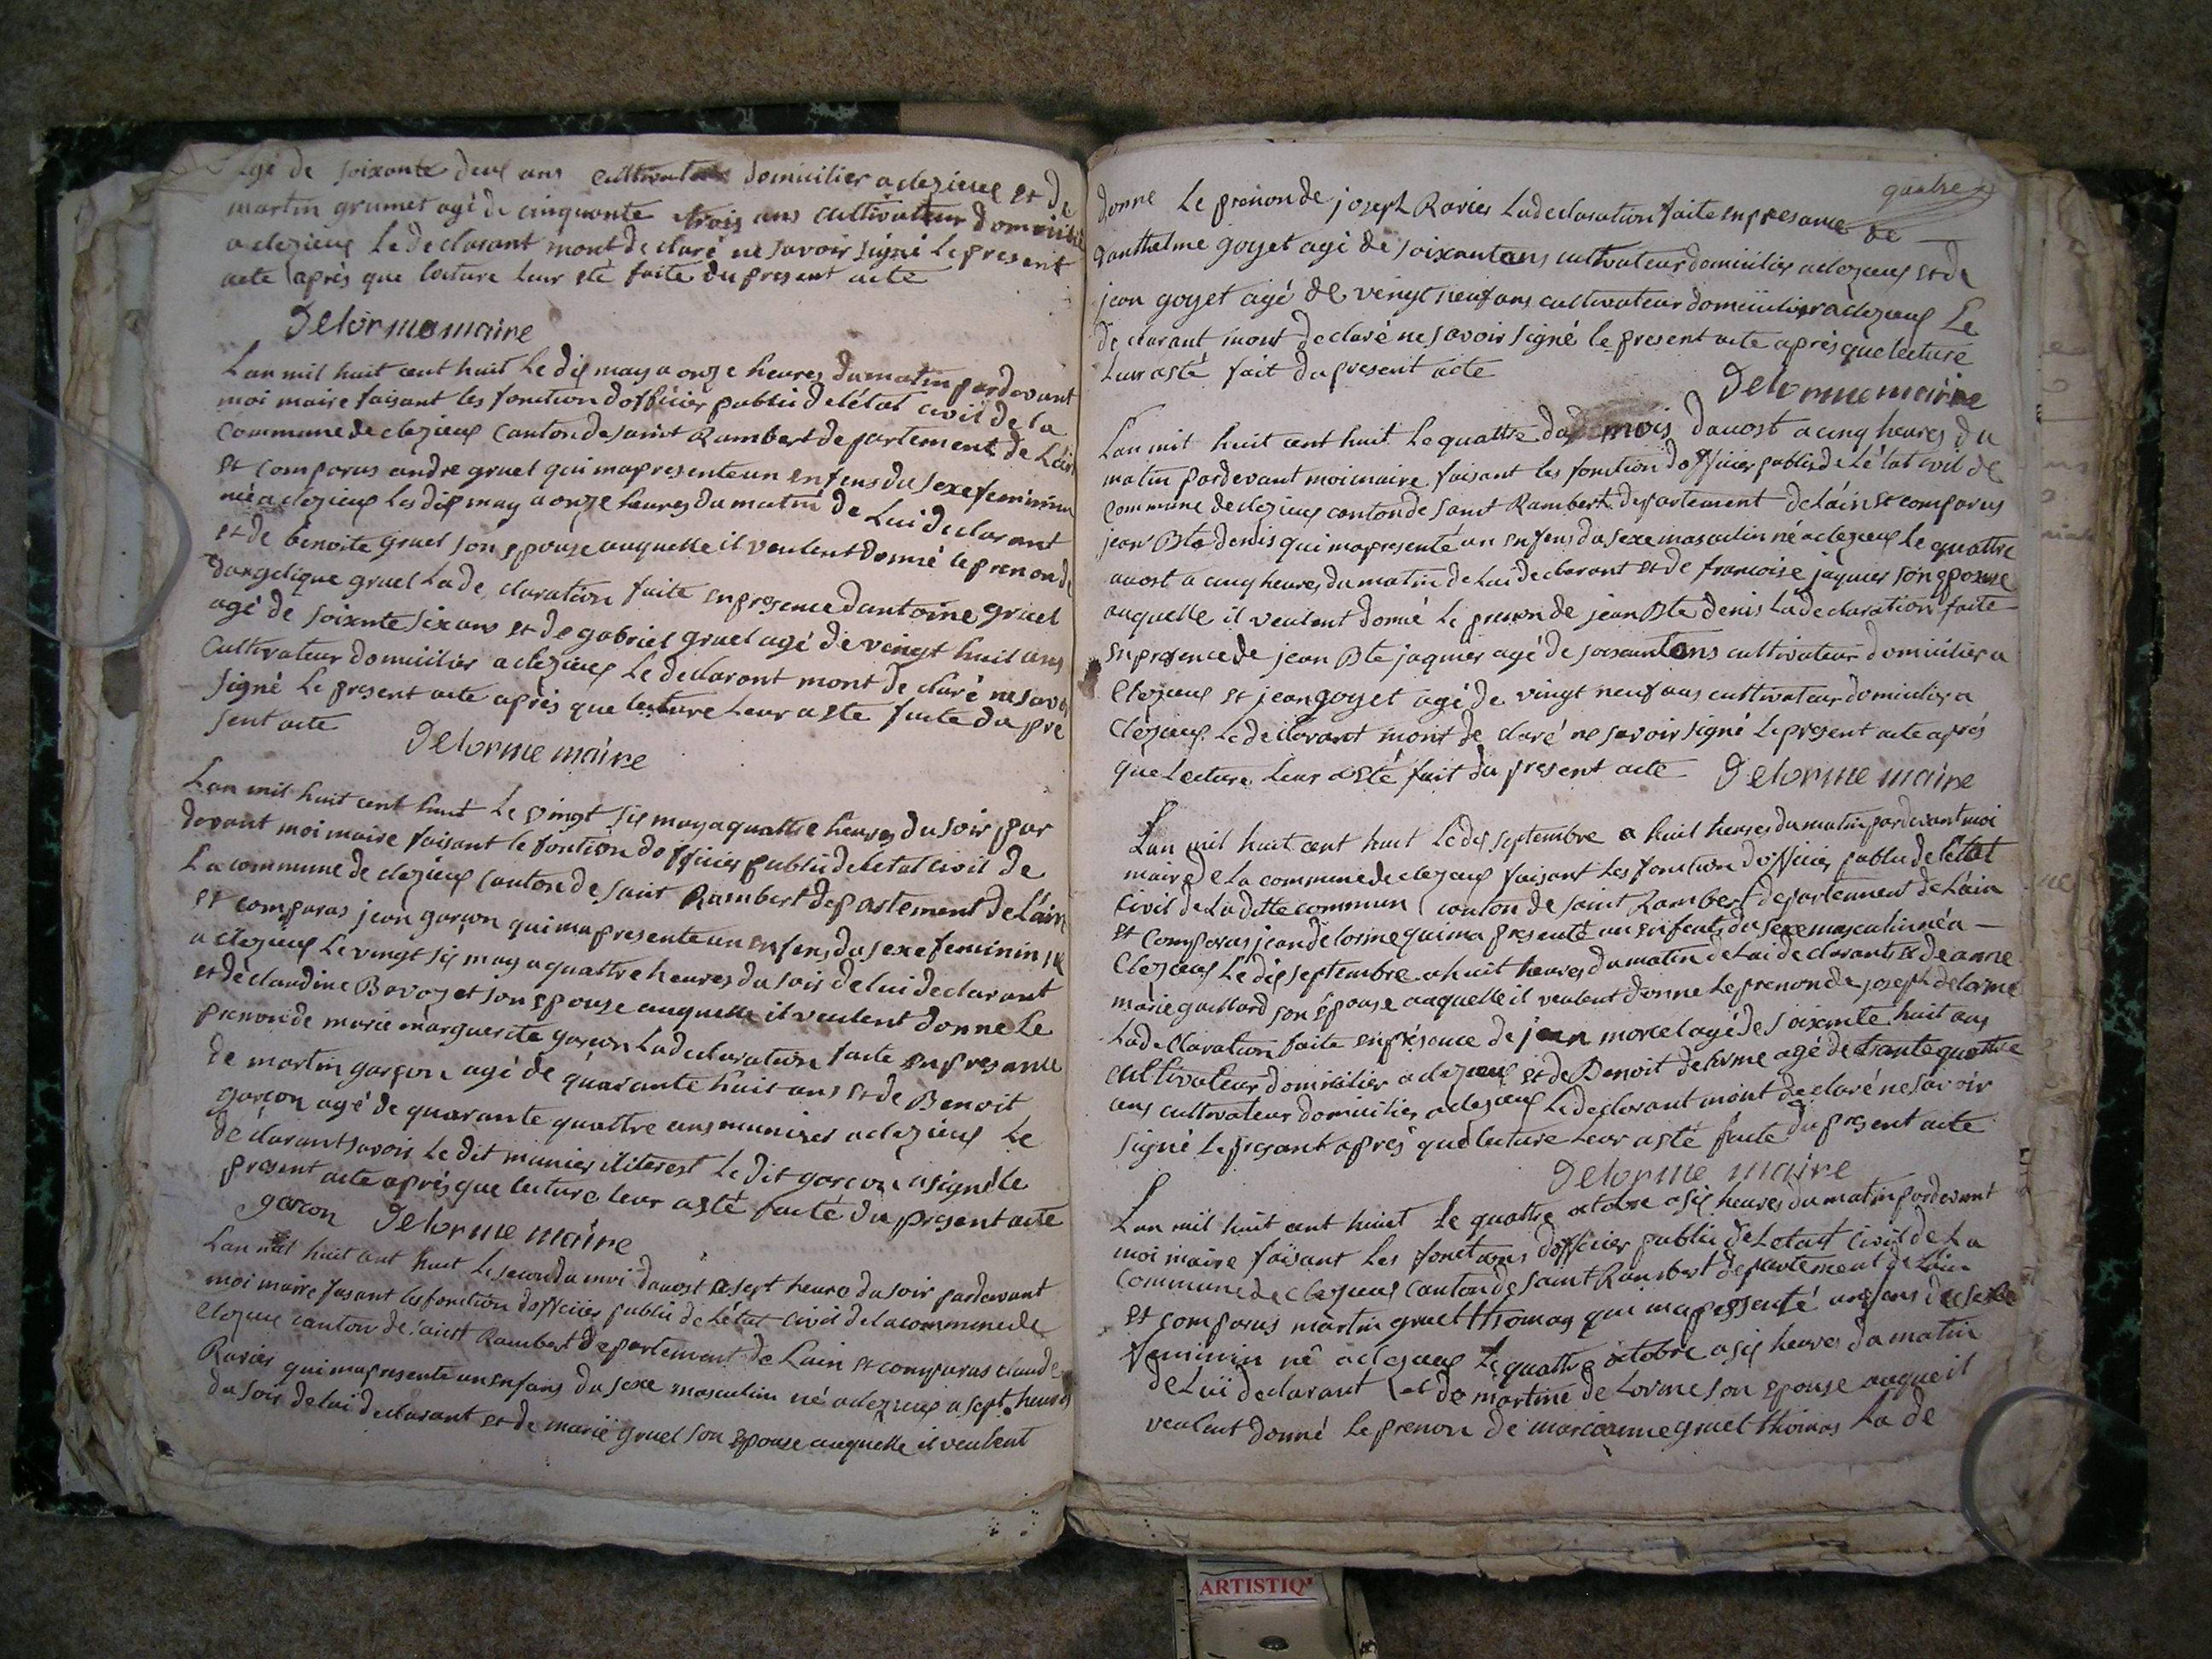 agé de soixante deux ans cultivateur domicilier a clezieux et de
martin grumet agé de cinquante trois ans cultivateur domicilié
a clezieux Le declarant mont de claré ne savoir signé Le present
acte après que lecture leur eté faite du present acte
Delorme maire
Lan mil huit cent huit Le dix may a onze heures du matin pardevant
moi maire faisant les fonction dofficier public de létat civil de la
Commune de clezieux Canton de saint Rambert departement de Láin
et comparus andre gruel qui ma presente un enfens du sexe feminin
né a clezieux Les dix may a onze heures du matin de Lui declarant
et de benoite gruel son epouse auquelle il veulent donné le prenon de
dangelique gruel La de claration faite en presence dantoine gruel
agé de soixnte six ans et de gabriel gruel agé de vingt huit ans
Cultivateur domicilier a clezieux Le declarant mont de claré ne savoir
signé Le present acte après que lecture Leur a eté faite du pre
sent acte Delorme maire
Lan mil huit cent huit Le vingt six may a quattre heures du soir par
devant moi maire faisant le fontion dofficier public de létat civil de
La commune de clezieux Canton de saint Rambert departement de Láin
et comparus jean garçon qui ma presente un enfens du sexe feminin né
a clezieux Le vingt six may a quattre heures du soir de lui declarant
et de claudine Bovoyet son epouse auquelle il veulent donne Le
prenon de marie marguerite garçon La declaration faite en presance
de martin garçon agé de quarante huit ans et de Benoit
garçon agé de quarante quattre ans munier a clezieux Le
declarant savoir Le dit munier iliterest Le dit garcon a signé le
present acte après que lecture leur a eté faite du present acte
garcon Delorme maire
Lan mil huit cent huit Le second du moi davost a sept heure du soir pardevant
moi maire fasant les fonction dofficier public de létat civil de la commune de
clezieux canton de saint Rambert departement de Lain et comparus claude
Ravier qui ma presente un enfans du sexe masculin né a clezieux a sept heures
du soir de lui declarant et de marie gruel son epouse auquelle il veulent
quatre
donne Le prenon de joseph Ravier La declaration faite en presance de
danthelme goyet agé de soixantans cultivateur domicilier a clezieux et de
jean goyet agé de vingt neuf ans cultivateur domicilier a clezieux Le
de clarant mont declaré ne savoir signé le present acte après que lecture
Leur a eté fait du present acte Delorme maire
Lan mil huit cent huit Le quattre du mois davost a cinq heures du
matin pardevant moi maire faisant les fonction dofficier public de Létat civil de
commune de clezieux canton de saint Rambert departement de Láin et comparus
jean Bte denis qui ma presenté un enfens du sexe masculin né a clezieux le quattre
avost a cinq heures du matin de Lui declarant et de francoise jaquier son epouse
auquelle il veulent donné Le prenon de jean Bte denis La declaration faite
en presence de jean Bte jaquier agé de soixantans cultivateur domicilier a
Clezieux et jean goyet agé de vingt neuf ans cultivateur domicilier a
Clezieux Le declarant mont de claré ne savoir signé Le present acte après
que Lecture Leur a eté fait du present acte Delorme maire
Lan mil huit cent huit Le dix septembre a huit heures du matin pardevant moi
maire de La commune de clezieux faisant Les fonction dofficier public de létat
civil de La ditte commun canton de saint Rambert departement de Láin
et Comparus jean delorme qui ma presenté un enfents du sexe masculin né a
Clezieux Le dix septembre a huit heures du matin de Lui declarant et de anne
marie gaillard son épouse auquelle il veulent donne Le prenon de joseph delorme
La declaration faite en présence de jean morcel agé de soixante huit ans
cultivateur domicilier a clezieux et de Benoit delorme agé de trante quattre
ans cultivateur domicilier a clezieux Le declarant mont declaré ne savoir
signé Le present après que lecture Leur a eté faite du present acte
Delorme maire
Lan mil huit cent huict Le quattre octobre a six heures du matin pardevant
moi maire faisant Les fonctions dofficier public de Letat civil de La
Commune de clezieux Canton de saint Rambert departement de Láin
et comparus martin gruel thomas qui ma presenté un enfens du sexe
feminin né a clezieux Le quattre octobre a six heures du matin
de Lui declarant et de martine de Lorme son epouse auque il
veulent donné Le prenon de marianne gruel thomas La de